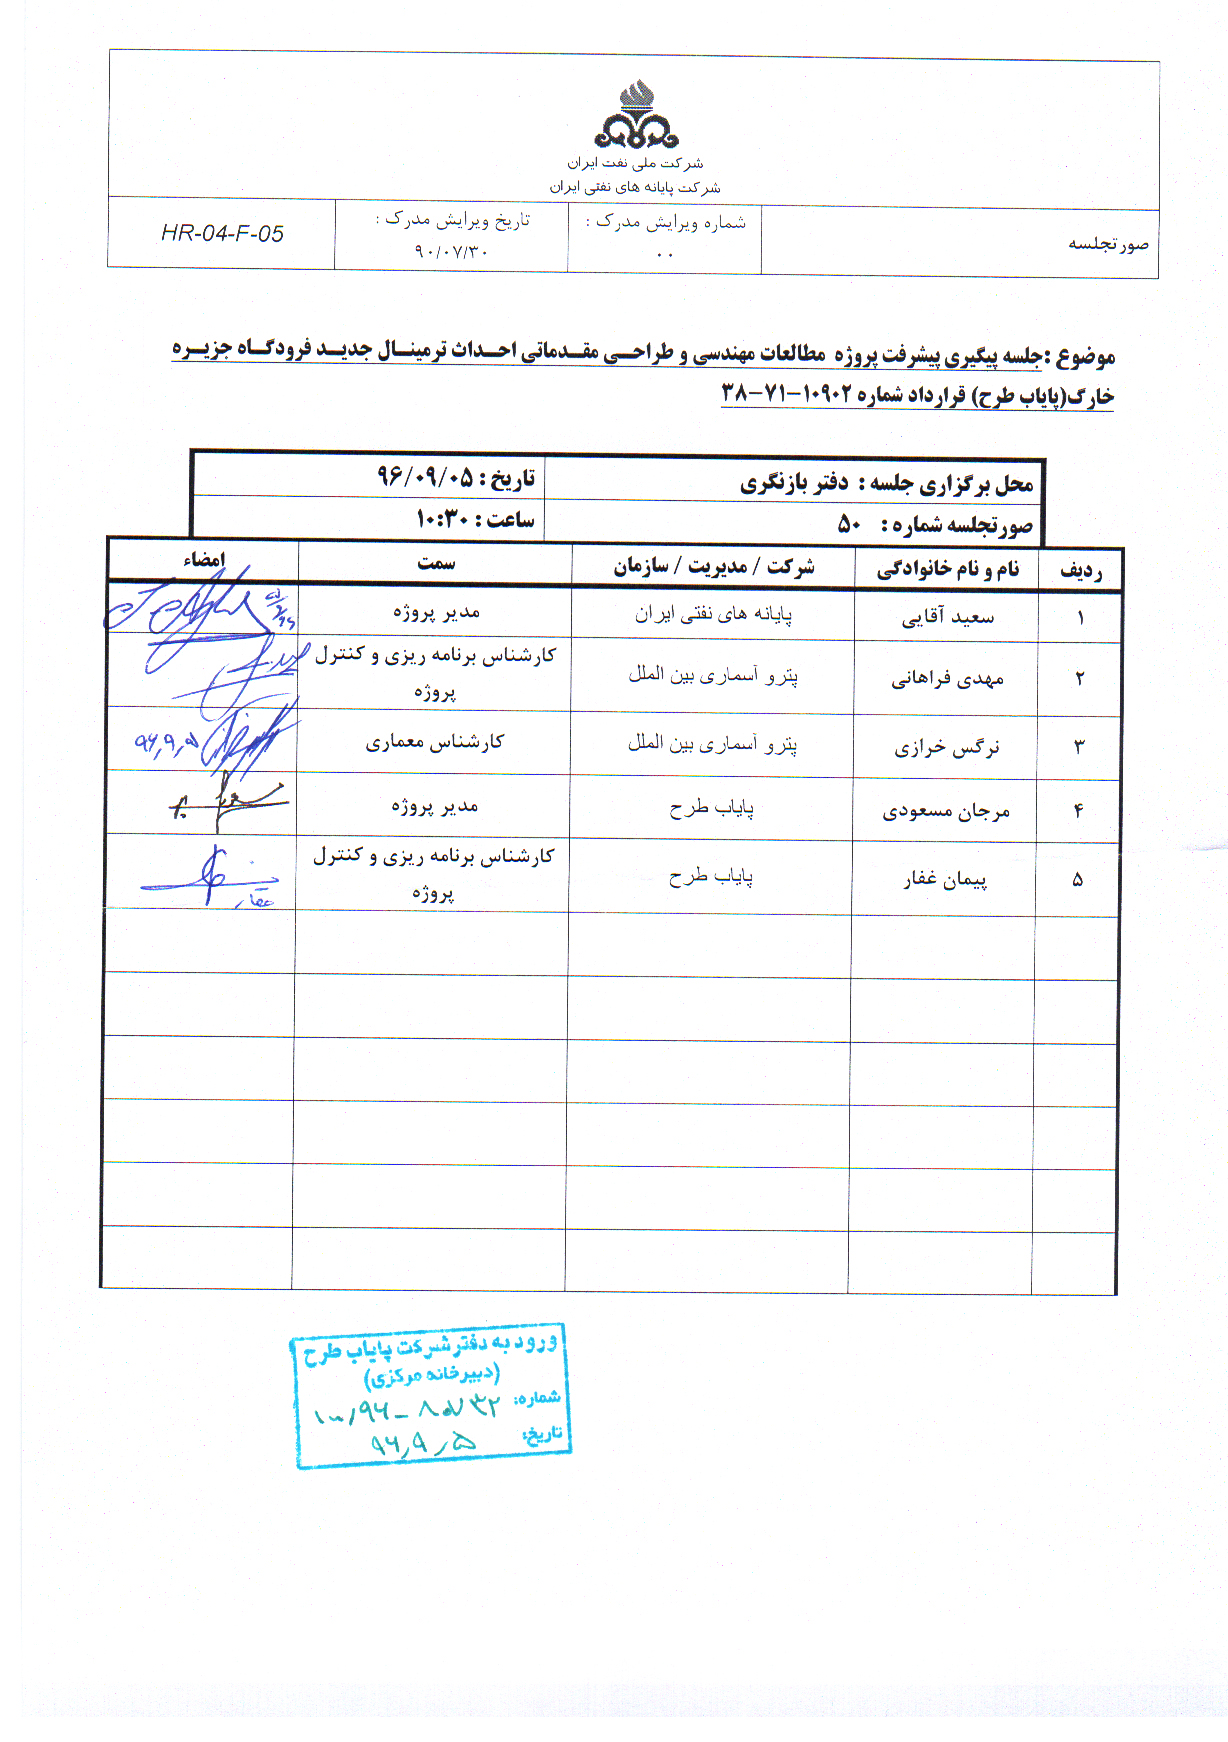 شرکت ملی نفت ایران
شرکت پایانه های نفتی ایران
صورتجلسه
شماره ویرایش مدرک :
۰۰
تاریخ ویرایش مدرک :
۹۰/۰۷/۳۰
HR-04-F-05
موضوع :جلسه پیگیری پیشرفت پروژه مطالعات مهندسی و طراحی مقدماتی احداث ترمینال جدید فرودگاه جزیره
خارگ(پایاب طرح) قرارداد شماره ۱۰۹۰۲-۷۱-۳۸
محل برگزاری جلسه : دفتر بازنگری
تاریخ : ۹۶/۰۹/۰۵
صورتجلسه شماره : ۵۰
ساعت : ۱۰:۳۰
ردیف نام و نام خانوادگی شرکت / مدیریت / سازمان سمت امضاء
۱ سعید آقایی پایانه های نفتی ایران مدیر پروژه
۲ مهدی فراهانی پترو آسماری بین الملل کارشناس برنامه ریزی و کنترل
پروژه
۳ نرگس خرازی پترو آسماری بین الملل کارشناس معماری ۹۶,۹,۵
۴ مرجان مسعودی پایاب طرح مدیر پروژه
۵ پیمان غفار پایاب طرح کارشناس برنامه ریزی و کنترل
پروژه
غفار
ورود به دفتر شرکت پایاب طرح
(دبیرخانه مرکزی)
شماره:
تاریخ: ۹۶,۹,۵